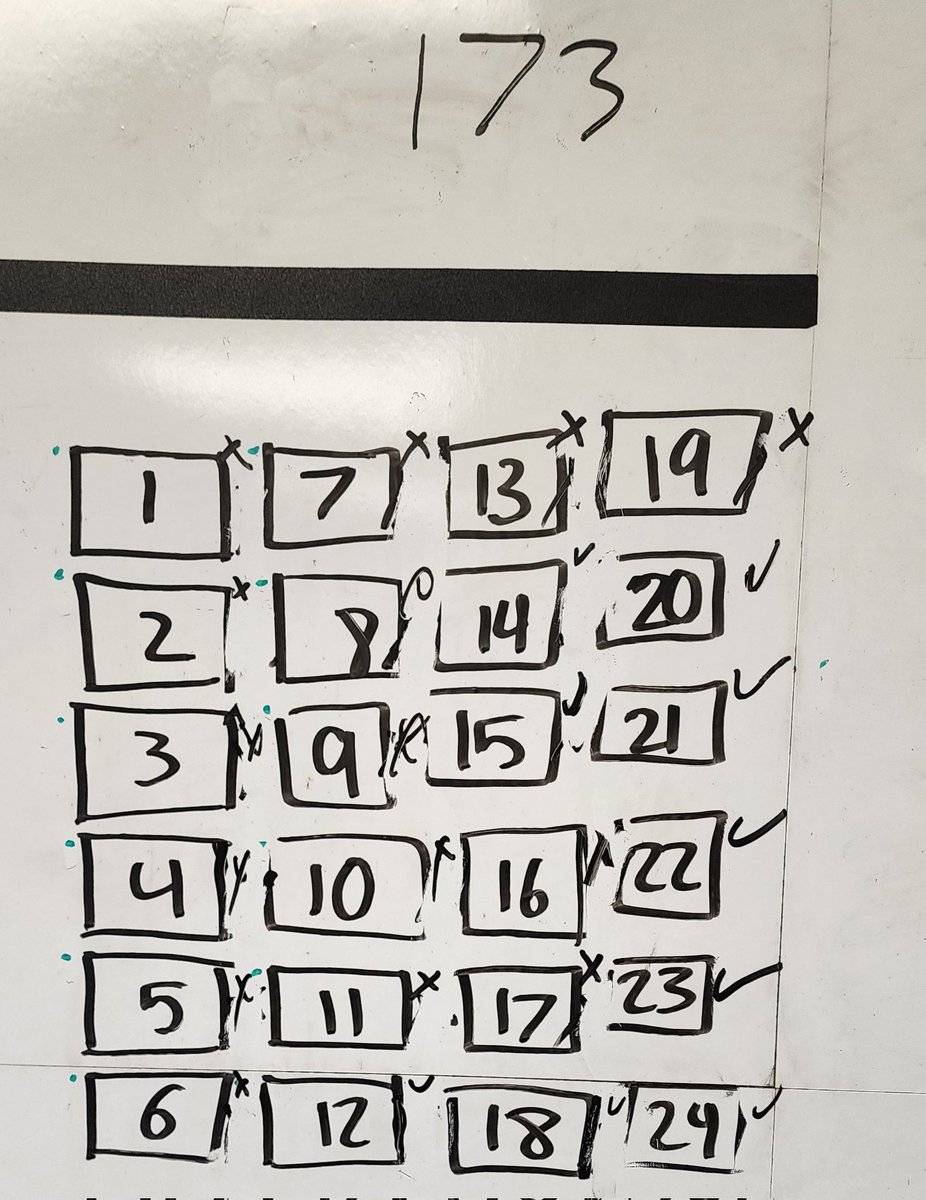 173
1 x 7 x 13 x 19 x
2 x 8 14 ✓ 20 ✓
3 9 15 ✓ 21 ✓
4 10 x 16 22 ✓
5 x 11 x 17 x 23 ✓
6 x 12 ✓ 18 ✓ 24 ✓